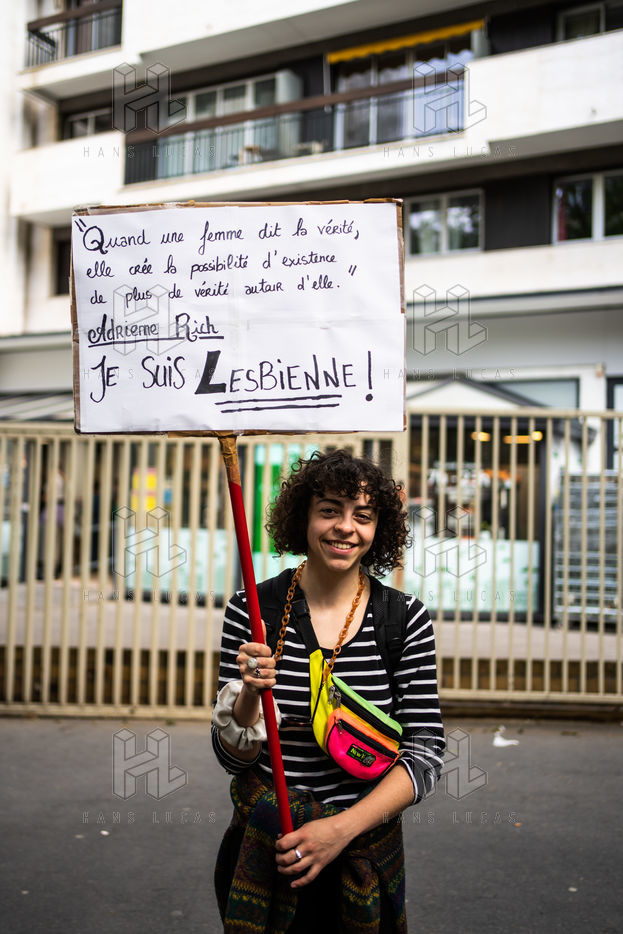 "Quand une femme dit la vérité,
elle crée la possibilité d'existence
de plus de vérité autour d'elle."
Adrienne Rich
Je suis Lesbienne !
HANS LUCAS
HANS LUCAS
HANS LUCAS
HANS LUCAS
HANS LUCAS
HANS LUCAS
HANS LUCAS
HANS LUCAS